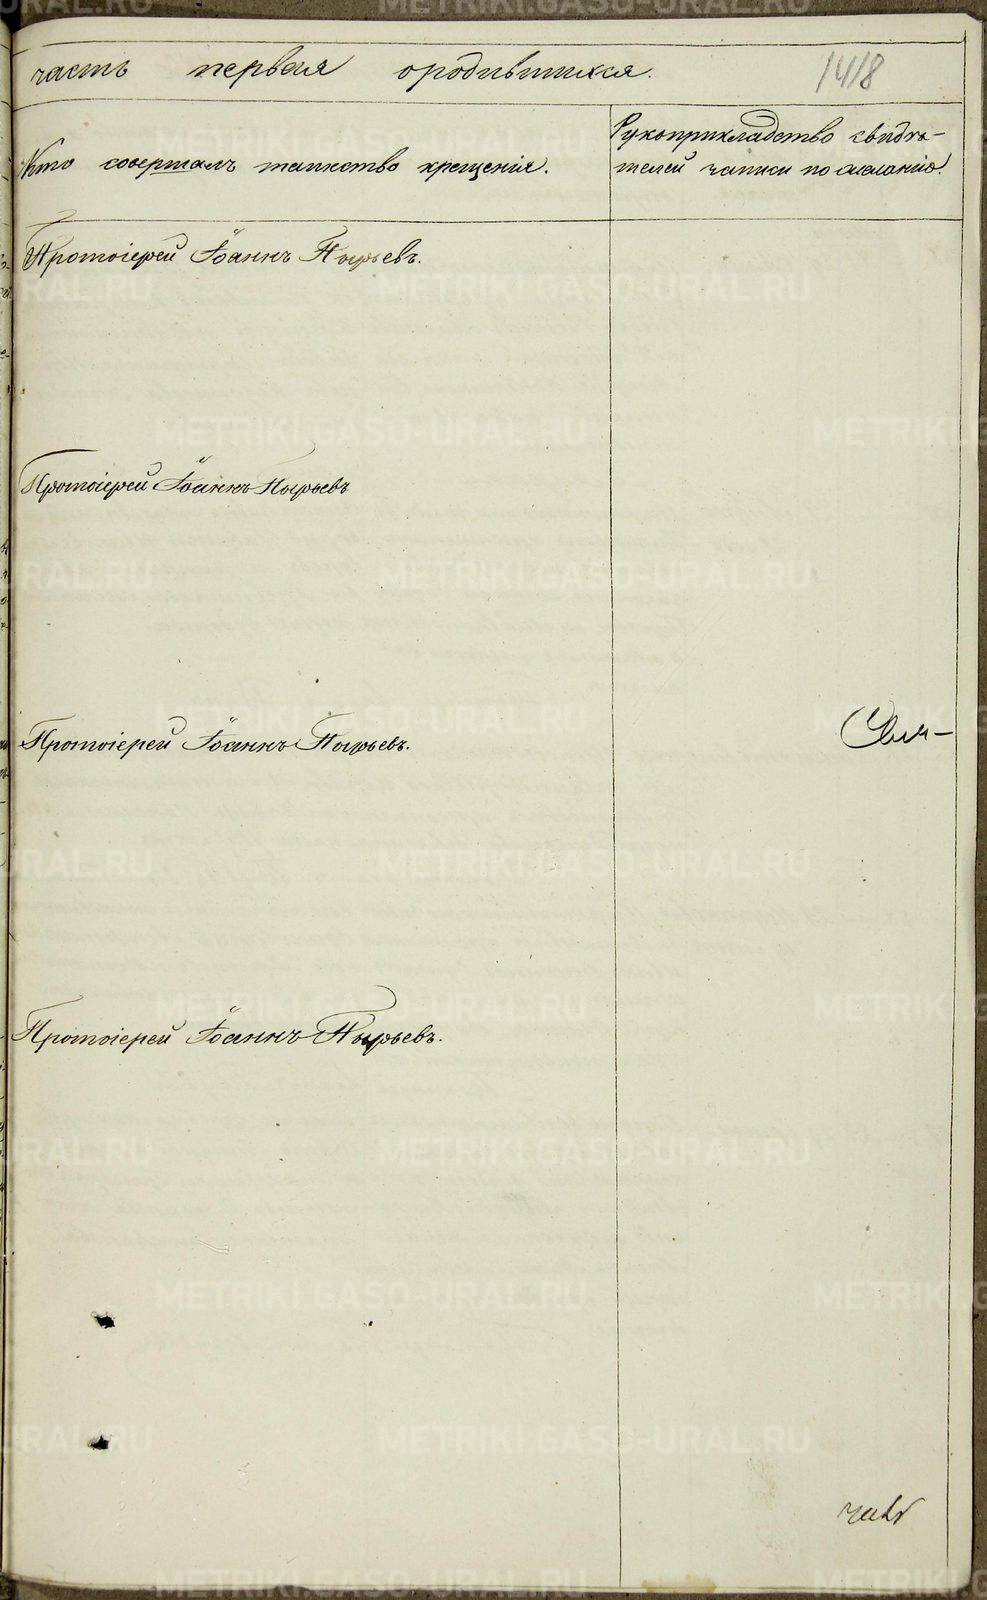 часть первая о родившихся.
1418
Кто совершалъ таинство крещенія.
Рукоприкладство свидѣ-
телей записи по желанію.
Протоіерей Іоаннъ Пырьевъ.
Протоіерей Іоаннъ Пырьевъ
Протоіерей Іоаннъ Пырьевъ.
Протоіерей Іоаннъ Пырьевъ.
METRIKI.GASO-URAL.RU